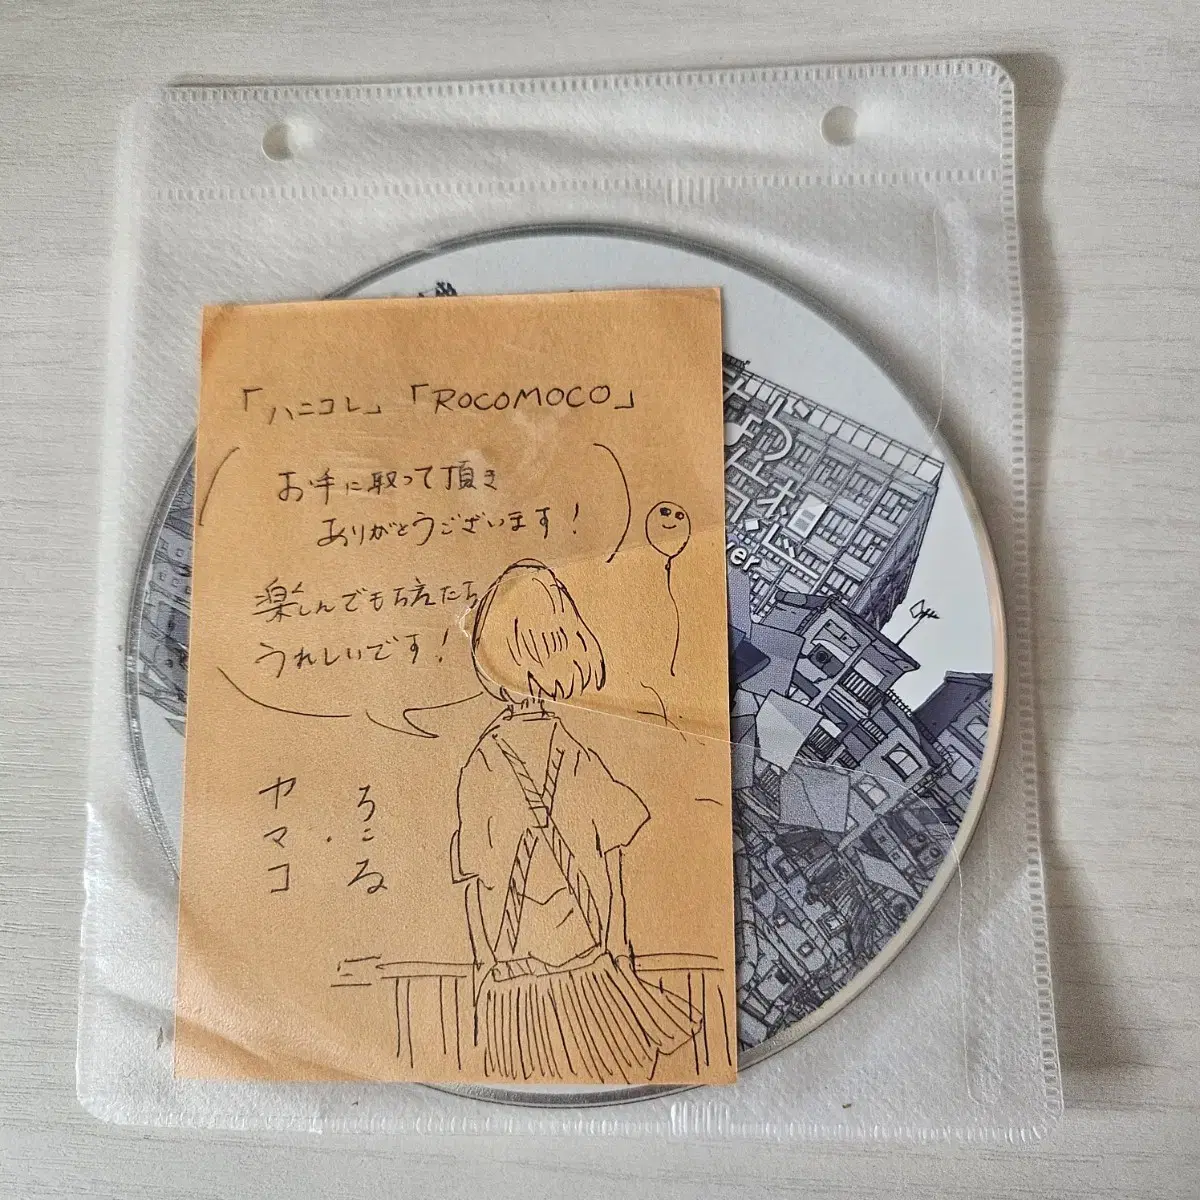 「ハニコレ」「ROCOMOCO」
お手に取って頂き
ありがとうございます!
楽しんでもらえたら
うれしいです!
ヤマコ・ろこる
ver